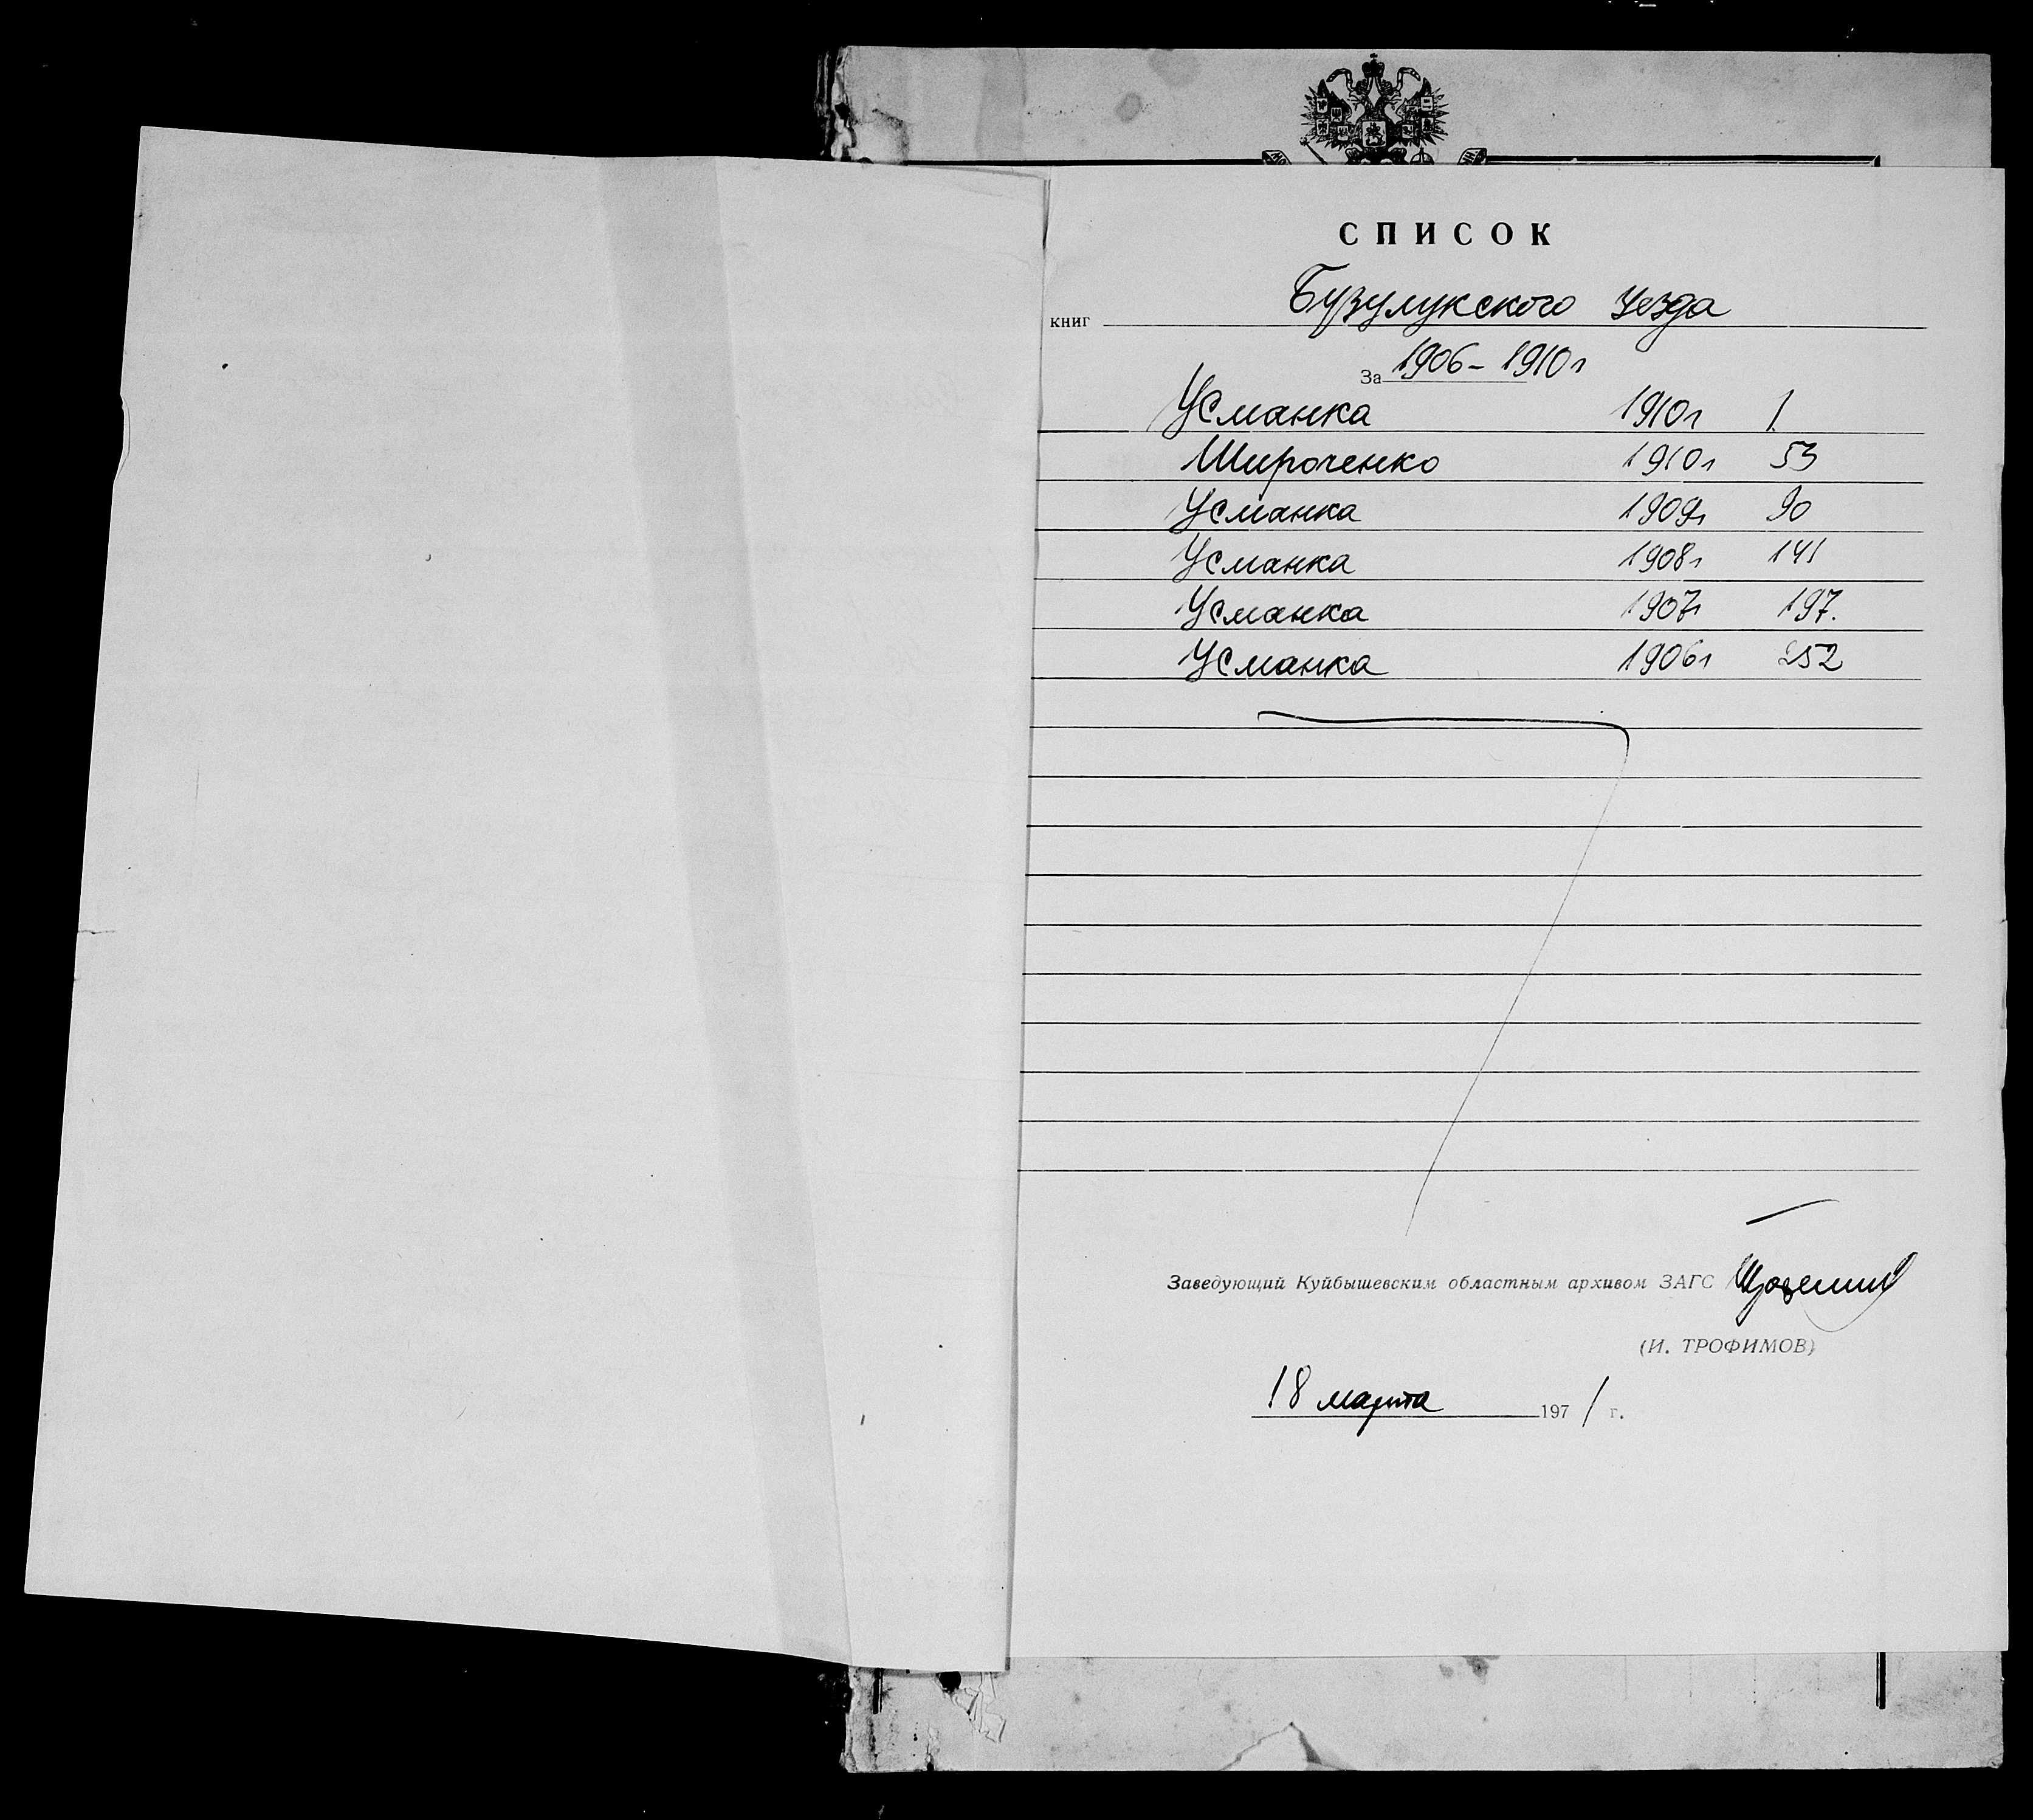 СПИСОК
книг Бузулукского уезда
За 1906-1910г
Усманка 1910г 1.
Широченко 1910г 53
Усманка 1909г 90
Усманка 1908г 141
Усманка 1907г 197.
Усманка 1906г 252
Заведующий Куйбышевским областным архивом ЗАГС
(И. ТРОФИМОВ)
18 марта 1971 г.